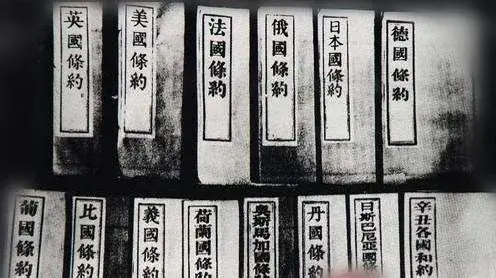 英國條約
美國條約
法國條約
俄國條約
日本國條約
德國條約
葡國條約
比國條約
義國條約
荷蘭國條約
奧斯馬加國條
丹國條約
日斯巴尼亞國
辛丑各國和約